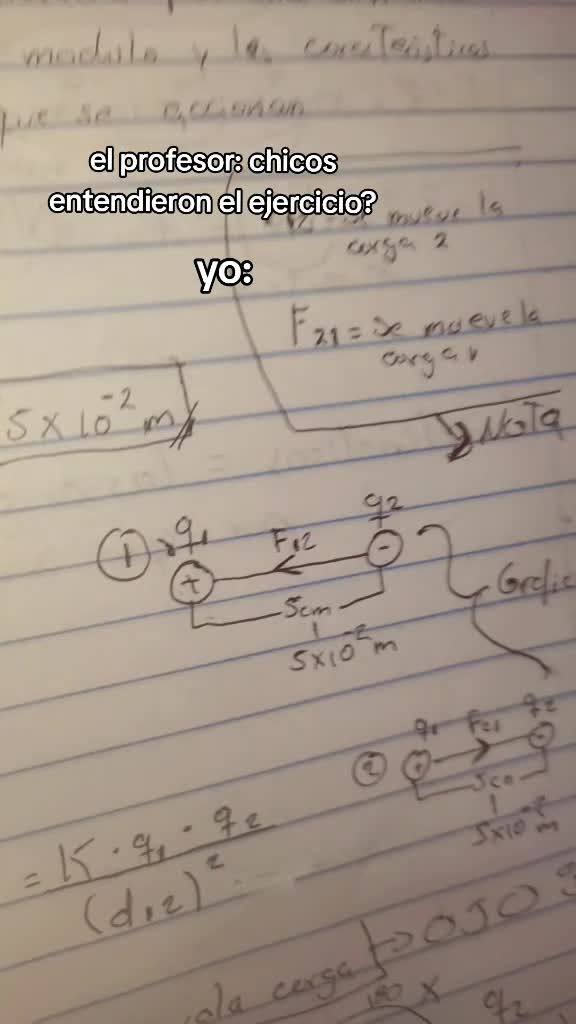 modulo y las caracteristicas
que se accionan
el profesor: chicos
entendieron el ejercicio?
yo:
se mueve la
carga 2
F21 = se mueve la
carga 1
5 x 10⁻² m
NOTA
① q1 F12 q2
+ -
5cm
5x10⁻² m
② q1 F21 q2
+ -
5x10⁻² m
= K · q1 · q2
(d12)²
OJO
la carga
x q2